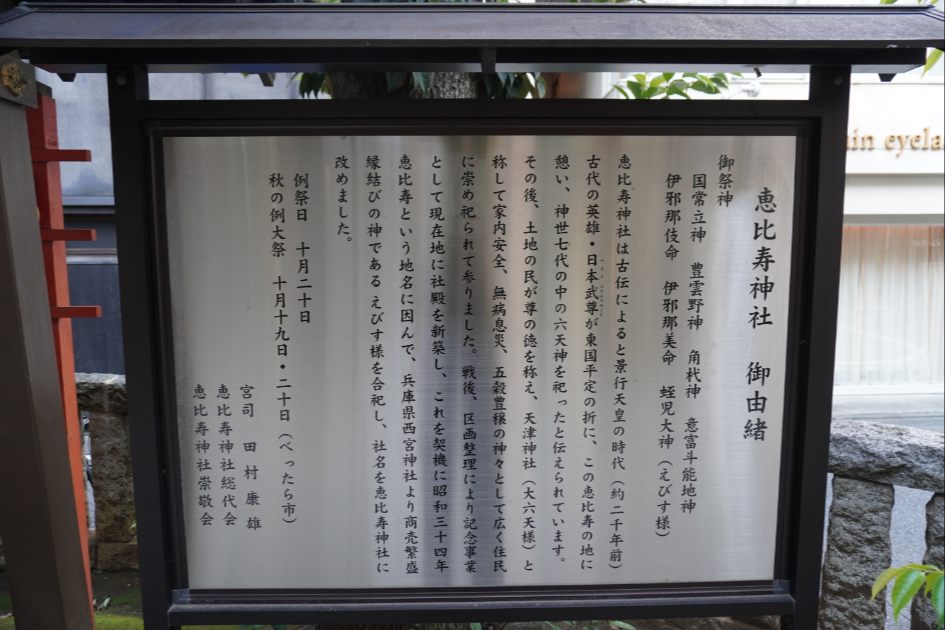 恵比寿神社 御由緒
御祭神
国常立神 豊雲野神 角杙神 意富斗能地神
伊邪那伎命 伊邪那美命 蛭児大神（えびす様）
恵比寿神社は古伝によると景行天皇の時代（約二千年前）
古代の英雄・日本武尊が東国平定の折に、この恵比寿の地に
憩い、神世七代の中の六天神を祀ったと伝えられています。
その後、土地の民が尊の徳を称え、天津神社（大六天様）と
称して家内安全、無病息災、五穀豊穣の神々として広く住民
に崇め祀られて参りました。戦後、区画整理により記念事業
として現在地に社殿を新築し、これを契機に昭和三十四年
恵比寿という地名に因んで、兵庫県西宮神社より商売繁盛
縁結びの神である えびす様を合祀し、社名を恵比寿神社に
改めました。
例祭日 十月二十日
秋の例大祭 十月十九日・二十日（べったら市）
宮司 田村康雄
恵比寿神社総代会
恵比寿神社崇敬会
ain eyela